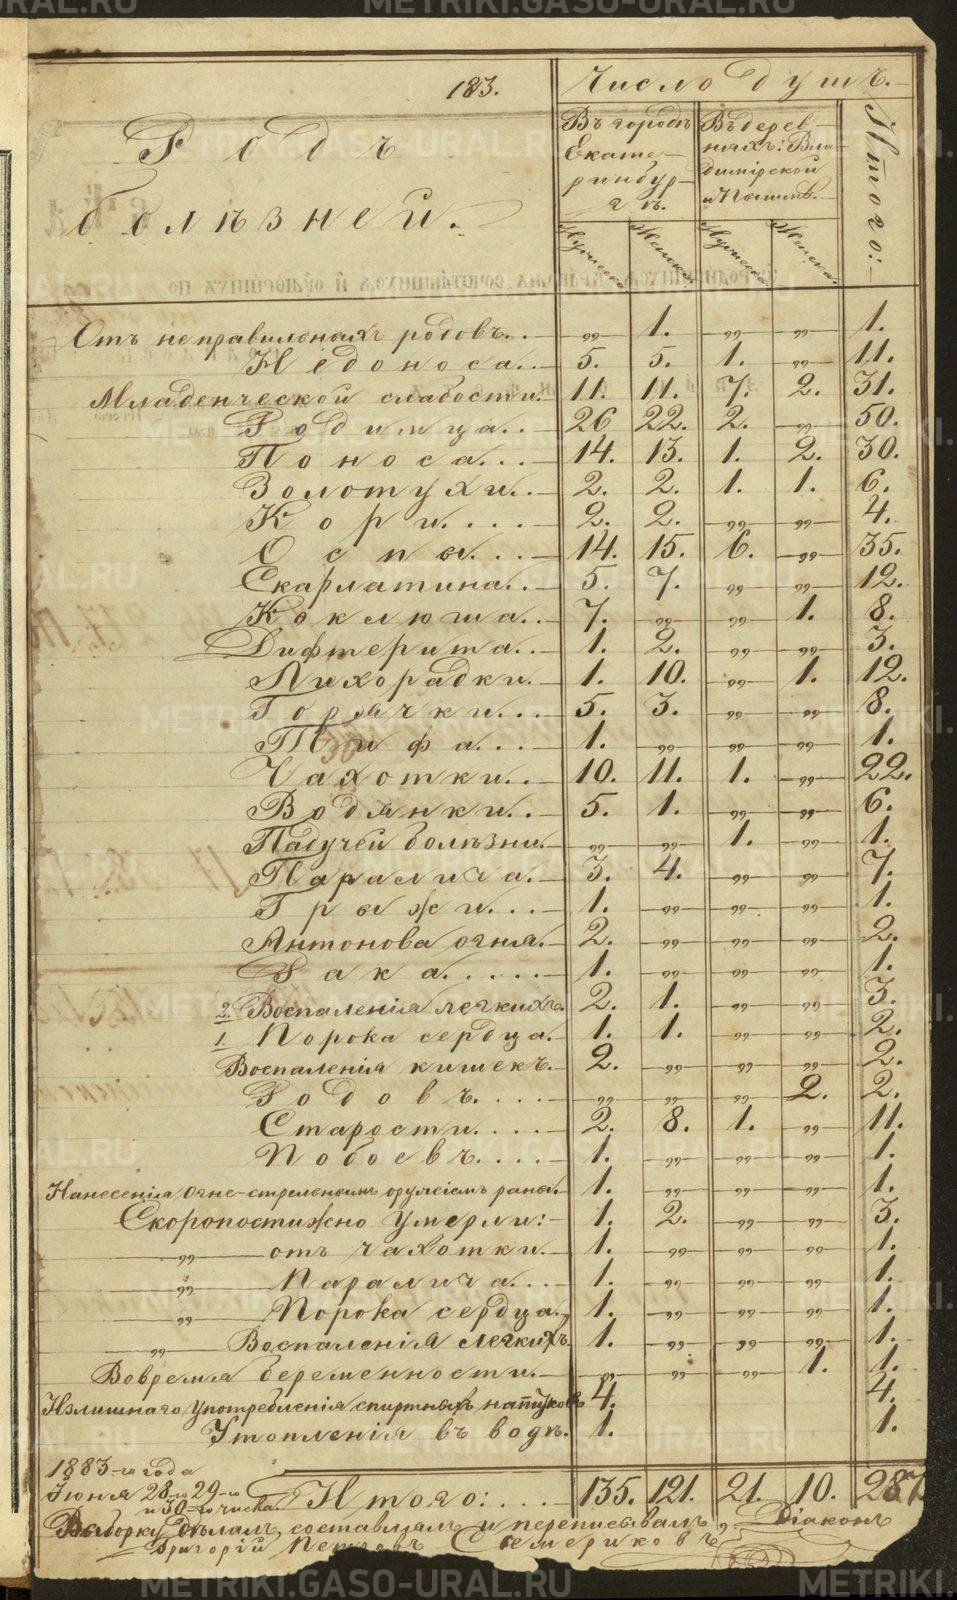 METRIKI.GASO-URAL.RU
183.
Число душъ.
Родъ болѣзней.
Въ городѣ Екатеринбургѣ.
Въ деревняхъ:
Итого:
Мужеска Женска Мужеска Женска
Отъ неправильныхъ родовъ. „ 1. „ „ 1.
Недоноса. 5. 5. 1. „ 11.
Младенческой слабости. 11. 11. 7. 2. 31.
Родимца. 26 22. 2. „ 50.
Поноса. 14. 13. 1. 2. 30.
Золотухи. 2. 2. 1. 1. 6.
Кори. 2. 2. „ „ 4.
Оспы. 14. 15. 6. „ 35.
Скарлатина. 5. 7. „ „ 12.
Коклюша. 7. „ „ 1. 8.
Дифтерита. 1. 2. „ „ 3.
Лихорадки. 1. 10. „ 1. 12.
Горячки. 5. 3. „ „ 8.
Тифа. 1. „ „ „ 1.
Чахотки. 10. 11. 1. „ 22.
Водянки. 5. 1. „ „ 6.
Падучей болѣзни. „ „ 1. „ 1.
Паралича. 3. 4. „ „ 7.
Грыжи. 1. „ „ „ 1.
Антонова огня. 2. „ „ „ 2.
Рака. 1. „ „ „ 1.
2. Воспаленія легкихъ. 2. 1. „ „ 3.
1. Порока сердца. 1. 1. „ „ 2.
Воспаленія кишекъ. 2. „ „ „ 2.
Родовъ. „ „ „ 2. 2.
Старости. 2. 8. 1. „ 11.
Побоевъ. 1. „ „ „ 1.
Нанесенія огне-стрельнымъ оружіемъ раны. 1. „ „ „ 1.
Скоропостижно умерли: 1. 2. „ „ 3.
„ отъ чахотки. 1. „ „ „ 1.
„ Паралича. 1. „ „ „ 1.
„ Порока сердца. 1. „ „ „ 1.
„ Воспаленія легкихъ. 1. „ „ „ 1.
Вовремя беременности. „ „ „ 1. 1.
Излишнаго употребленія спиртныхъ напитковъ 4. 4.
Утопленія въ водѣ. 1. 1.
1883-го года
Іюня 28-го 29-го
и 30-го числа.
Итого: 135. 121. 21. 10. 287
Выборку дѣлалъ, составлялъ и переписывалъ, Діаконъ
Григорій Петровъ Семериковъ